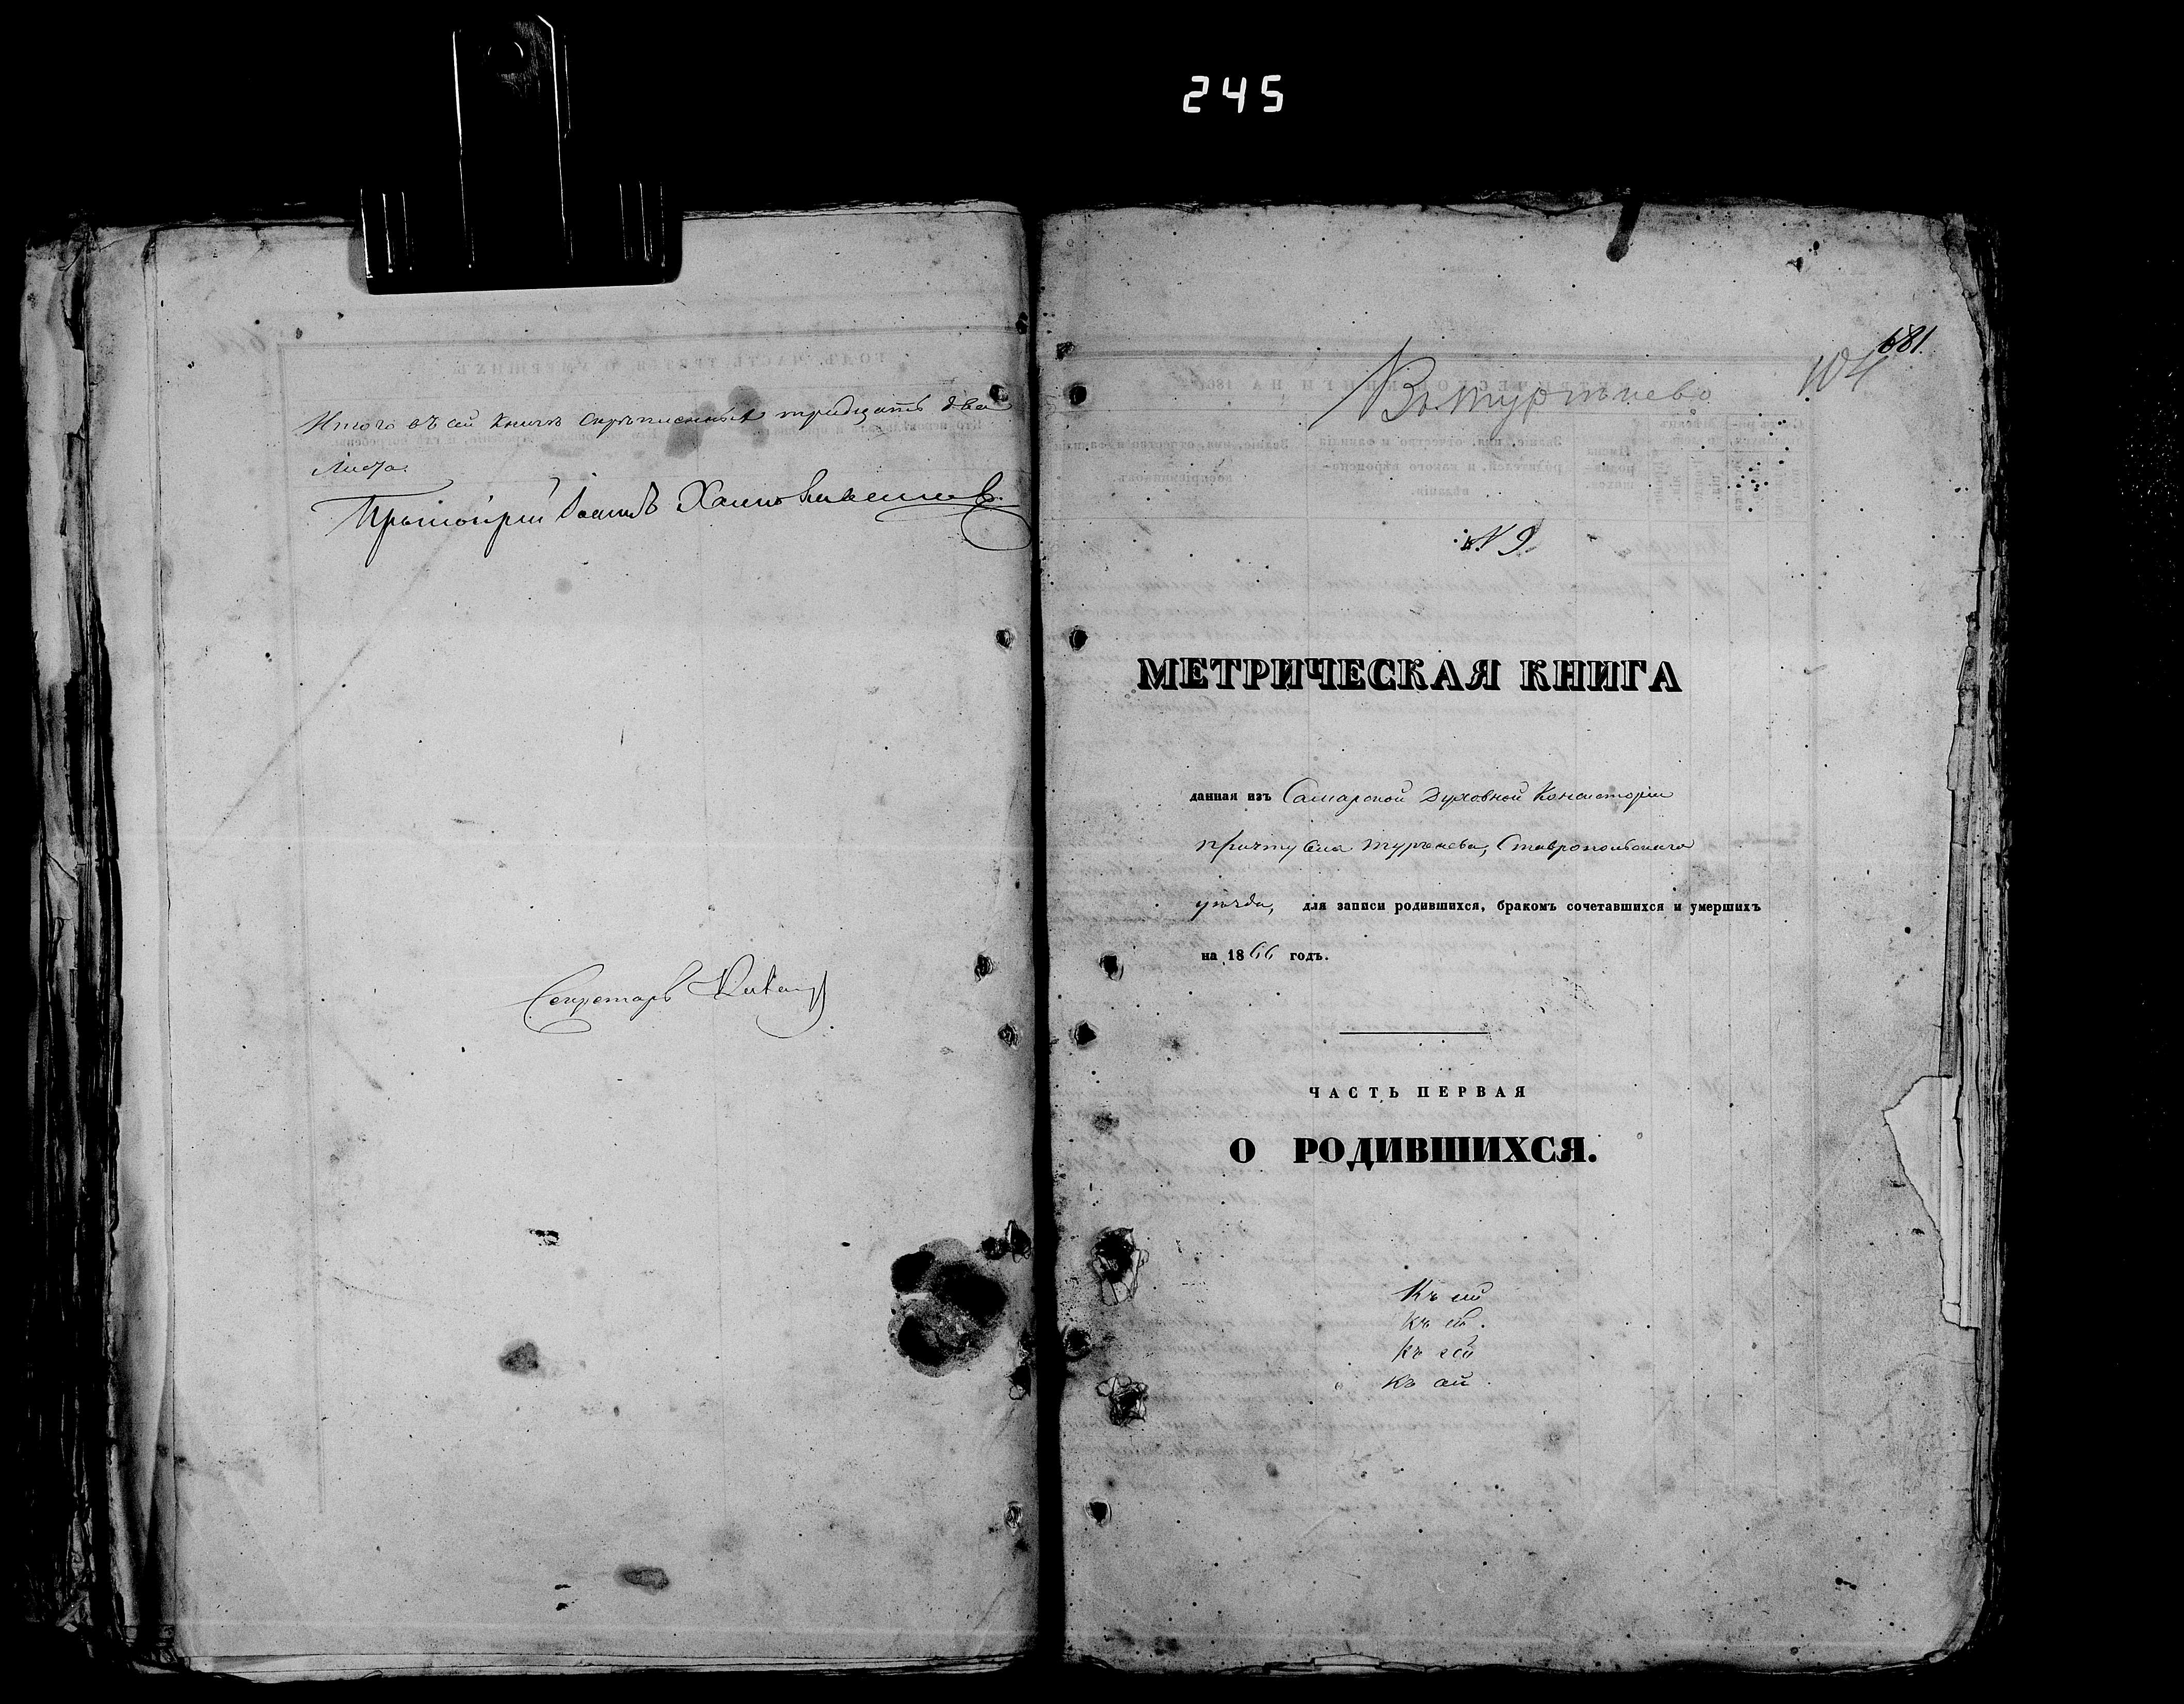 245
Итого въ сей книгѣ скрѣпленныхъ тридцать два
листа.
Протоіерей Іоаннъ
Секретарь
681.
104
В. Тургѣнево
№ 9.
МЕТРИЧЕСКАЯ КНИГА
данная изъ Самарской Духовной Консисторіи
причту села Тургенева, Ставропольскаго
уѣзда, для записи родившихся, бракомъ сочетавшихся и умершихъ
на 1866 годъ.
ЧАСТЬ ПЕРВАЯ
О РОДИВШИХСЯ.
Къ
Къ
Къ
Къ